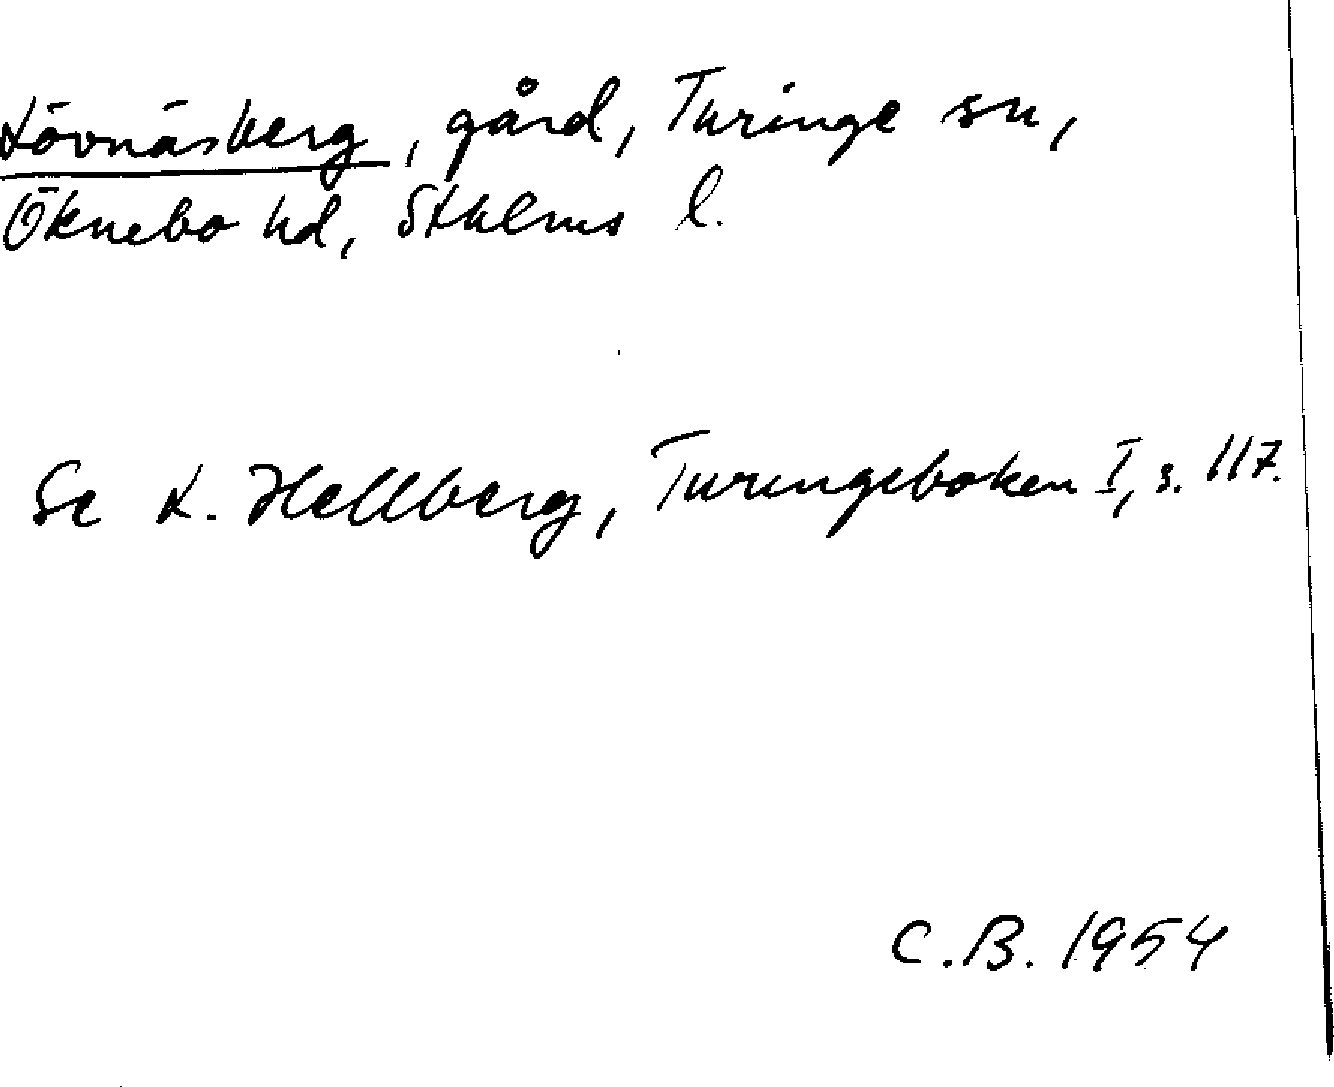 Lövnäsberg, gård, Turinge sn,
Öknebo hd, Sthlms l.
Se L. Hellberg, Turingeboken I, s. 117.
C.B. 1954